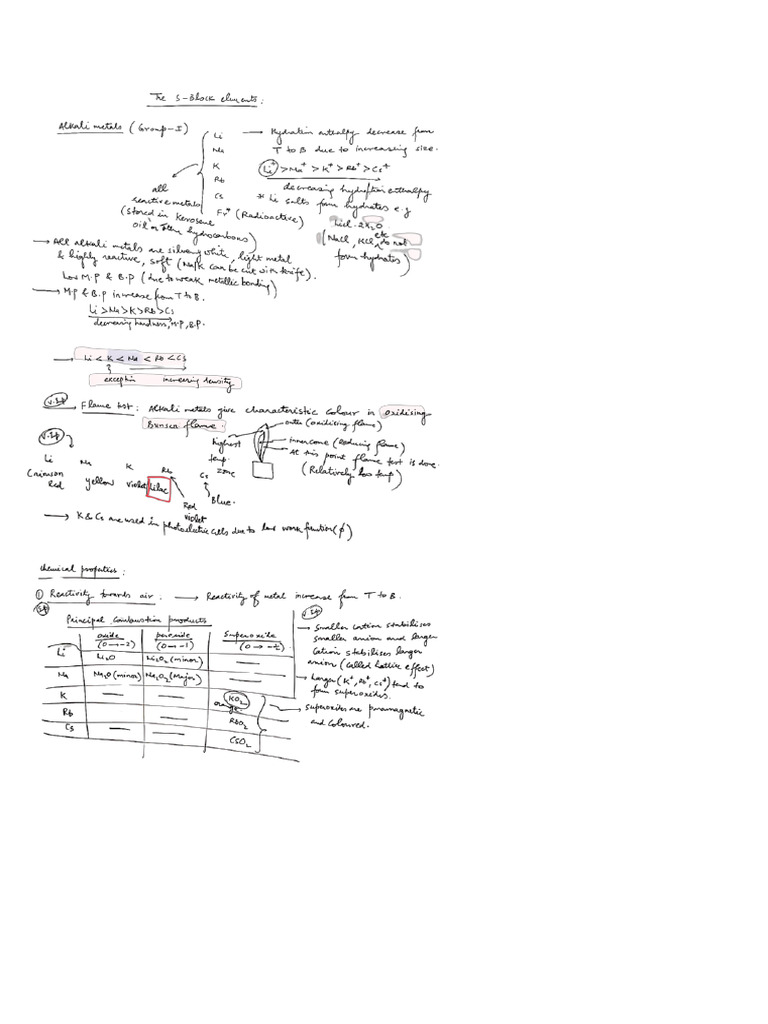 The S-Block elements:
Alkali metals (Group-I)
Li
Na
K
Rb
Cs
Fr* (Radioactive)
all
reactive metals
(stored in kerosene
oil or other hydrocarbons)
→ Hydration enthalpy decrease from
T to B due to increasing size.
Li⁺ > Na⁺ > K⁺ > Rb⁺ > Cs⁺
decreasing hydration enthalpy
* Li salts form hydrates e.g
LiCl.2H₂O
(NaCl, KCl, etc do not
form hydrates)
→ All alkali metals are silvery white, light metal
& highly reactive, soft (Na/K can be cut with knife).
Low M.P & B.P (due to weak metallic bonding)
→ M.P & B.P increase from T to B.
Li > Na > K > Rb > Cs
decreasing hardness, M.P, B.P.
→ Li < K < Na < Rb < Cs
exception increasing density
V.Imp
→ Flame test: Alkali metals give characteristic colour in oxidising
Bunsen flame.
outer (oxidising flame)
inner cone (reducing flame)
At this point flame test is done.
(Relatively low temp)
highest
temp.
zone
V.Imp
Li Na K Rb Cs
Crimson
Red
yellow
violet
Lilac
Red
violet
Blue.
→ K & Cs are used in photoelectric cells due to low work function (ϕ)
Chemical properties:
① Reactivity towards air: → Reactivity of metal increase from T to B.
Imp
Principal Combustion products
oxide
(O → -2)
peroxide
(O → -1)
Superoxide
(O → -½)
Li Li₂O Li₂O₂ (minor) —
Na Na₂O (minor) Na₂O₂ (Major) —
K — — KO₂
orange
Rb — RbO₂
Cs — — CsO₂
V.Imp
→ Smaller cation stabilises
smaller anion and larger
cation stabilises larger
anion (called lattice effect)
→ Larger (K⁺, Rb⁺, Cs⁺) tend to
form superoxides.
→ Superoxides are paramagnetic
and coloured.